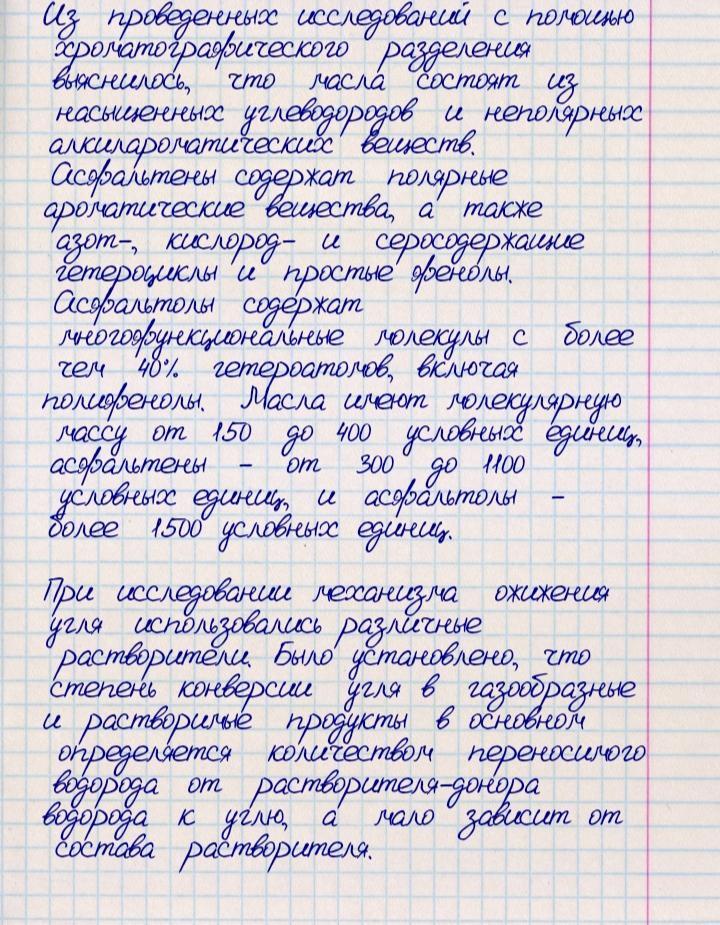 Из проведенных исследований с помощью
хроматографического разделения
выяснилось, что масла состоят из
насыщенных углеводородов и неполярных
алкилароматических веществ.
Асфальтены содержат полярные
ароматические вещества, а также
азот-, кислород- и серосодержащие
гетероциклы и простые фенолы.
Асфальтолы содержат
многофункциональные молекулы с более
чем 40% гетероатомов, включая
полифенолы. Масла имеют молекулярную
массу от 150 до 400 условных единиц,
асфальтены - от 300 до 1100
условных единиц, и асфальтолы -
более 1500 условных единиц.
При исследовании механизма ожижения
угля использовались различные
растворители. Было установлено, что
степень конверсии угля в газообразные
и растворимые продукты в основном
определяется количеством переносимого
водорода от растворителя-донора
водорода к углю, а мало зависит от
состава растворителя.